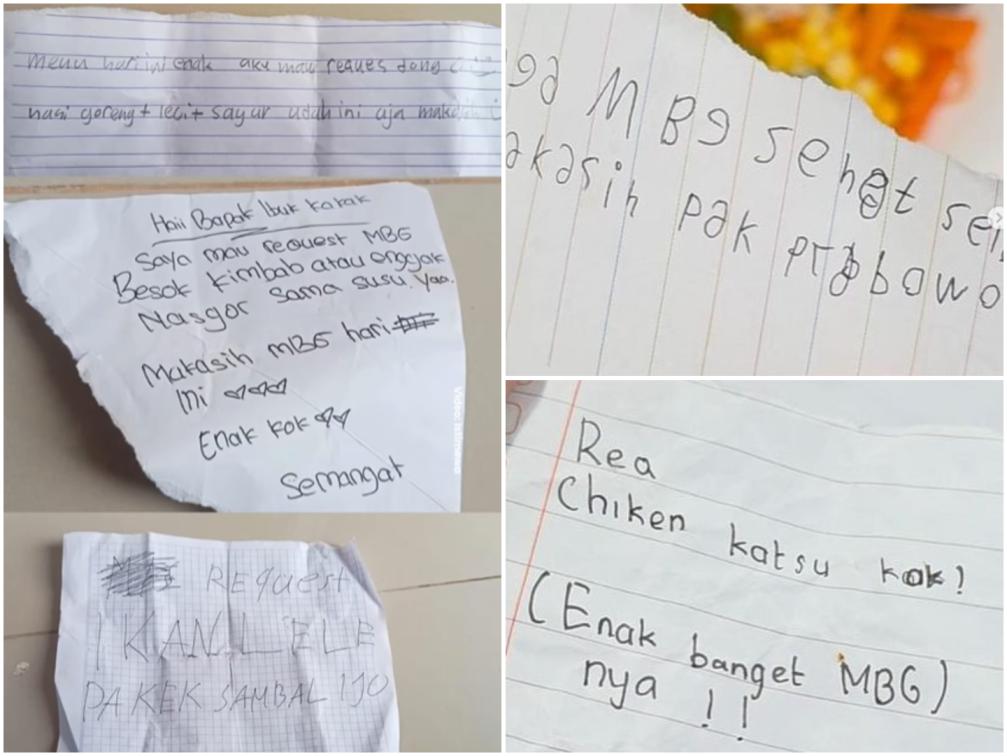 Menu hari ini enak aku mau reques dong
nasi goreng + leci + sayur udah ini aja makasih
Haii Bapak Ibuk kakak
Saya mau request MBG
Besok kimbab atau enggak
Nasgor sama susu. Yaa.
Makasih MBG hari
Ini ♡♡♡
Enak kok ♡♡
Semangat
REquest
IKAN LELE
PAKEK SAMBAL IJO
MBG sehat
akasih pak prabowo
Rea
Chiken katsu kak!
(Enak banget MBG)
nya !!